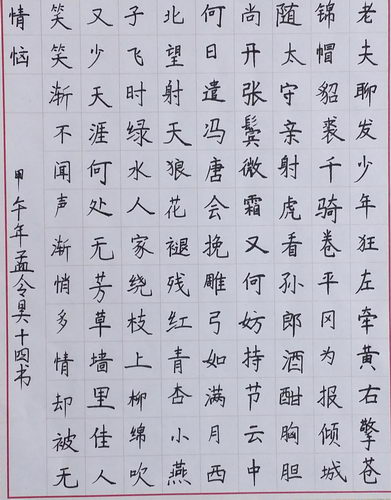 老夫聊发少年狂左牵黄右擎苍
锦帽貂裘千骑卷平冈为报倾城
随太守亲射虎看孙郎酒酣胸胆
尚开张鬓微霜又何妨持节云中
何日遣冯唐会挽雕弓如满月西
北望射天狼花褪残红青杏小燕
子飞时绿水人家绕枝上柳绵吹
又少天涯何处无芳草墙里佳人
笑笑渐不闻声渐悄多情却被无
情恼
甲午年孟令十四书